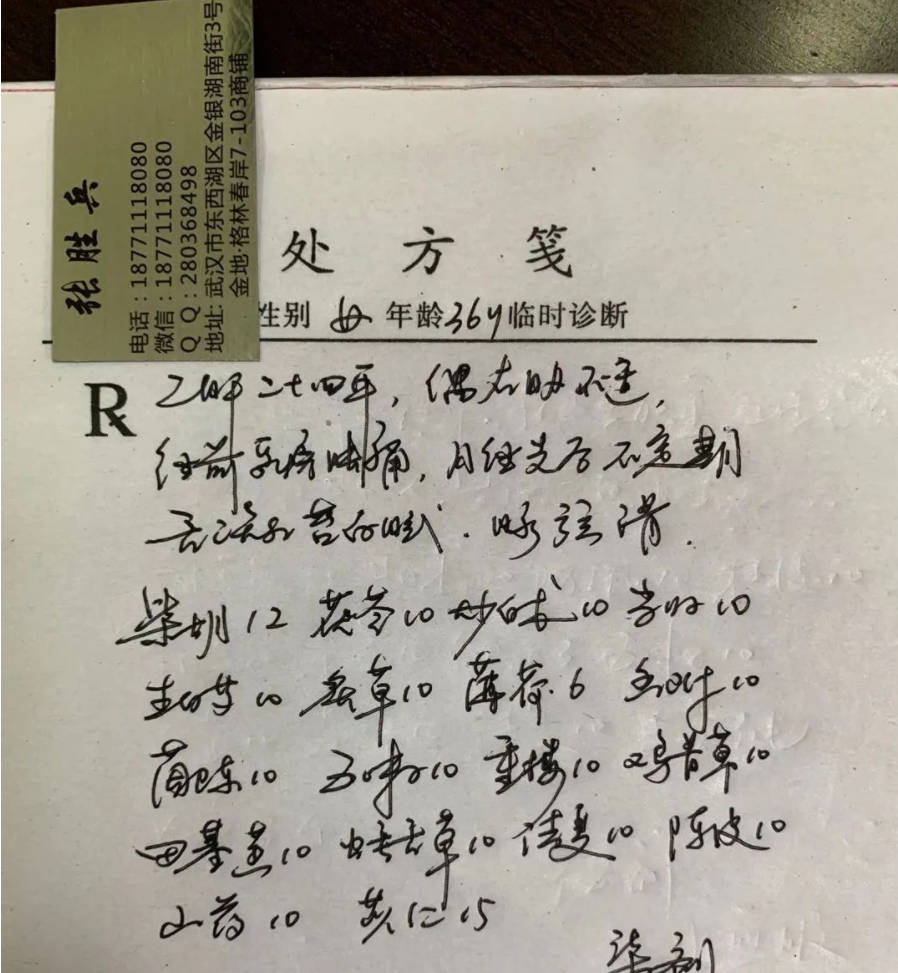 张胜兵
电话：18771118080
微信：18771118080
Q Q：280368498
地址：武汉市东西湖区金银湖南街3号
金地·格林春岸7-103商铺
处方笺
性别 女 年龄36岁 临时诊断
R 乙肝二十四年，偶右胁不适，
经前乳房胀痛，月经先后不定期
舌淡红苔白腻．脉弦滑．
柴胡12 茯苓10 炒白术10 当归10
生白芍10 炙草10 薄荷6
五味子10 重楼10 鸡骨草10
田基黄10 法夏10 陈皮10
山药10 苡仁15
柒剂